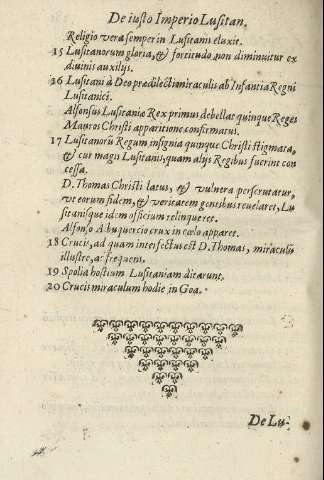 De iusto Imperio Lusitan.
Religio vera semper in Lusitanis eluxit.
15 Lusitanorum gloria, & fortitudo non diminuitur ex
diuinis auxilijs.
16 Lusitani à Deo prædilecti miraculis ab Infantia Regni
Lusitanici.
Alfonsus Lusitaniæ Rex primus debellat quinque Reges
Mauros Christi apparitione confirmatus.
17 Lusitanorũ Regum insignia quinque Christi stigmata,
& cur magis Lusitanis, quam alijs Regibus fuerint con
cessa.
D. Thomas Christi latus, & vulnera perscrutatur,
vt eorum fidem, & veritatem gentibus reuelaret, Lu
sitanisque idem officium relinqueret.
Alfonso Albuquercio crux in cælo apparet.
18 Crucis, ad quam interfectus est D. Thomas, miraculũ
illustre, ac frequens.
19 Spolia hostium Lusitaniam ditarunt.
20 Crucis miraculum hodie in Goa.
De Lu-